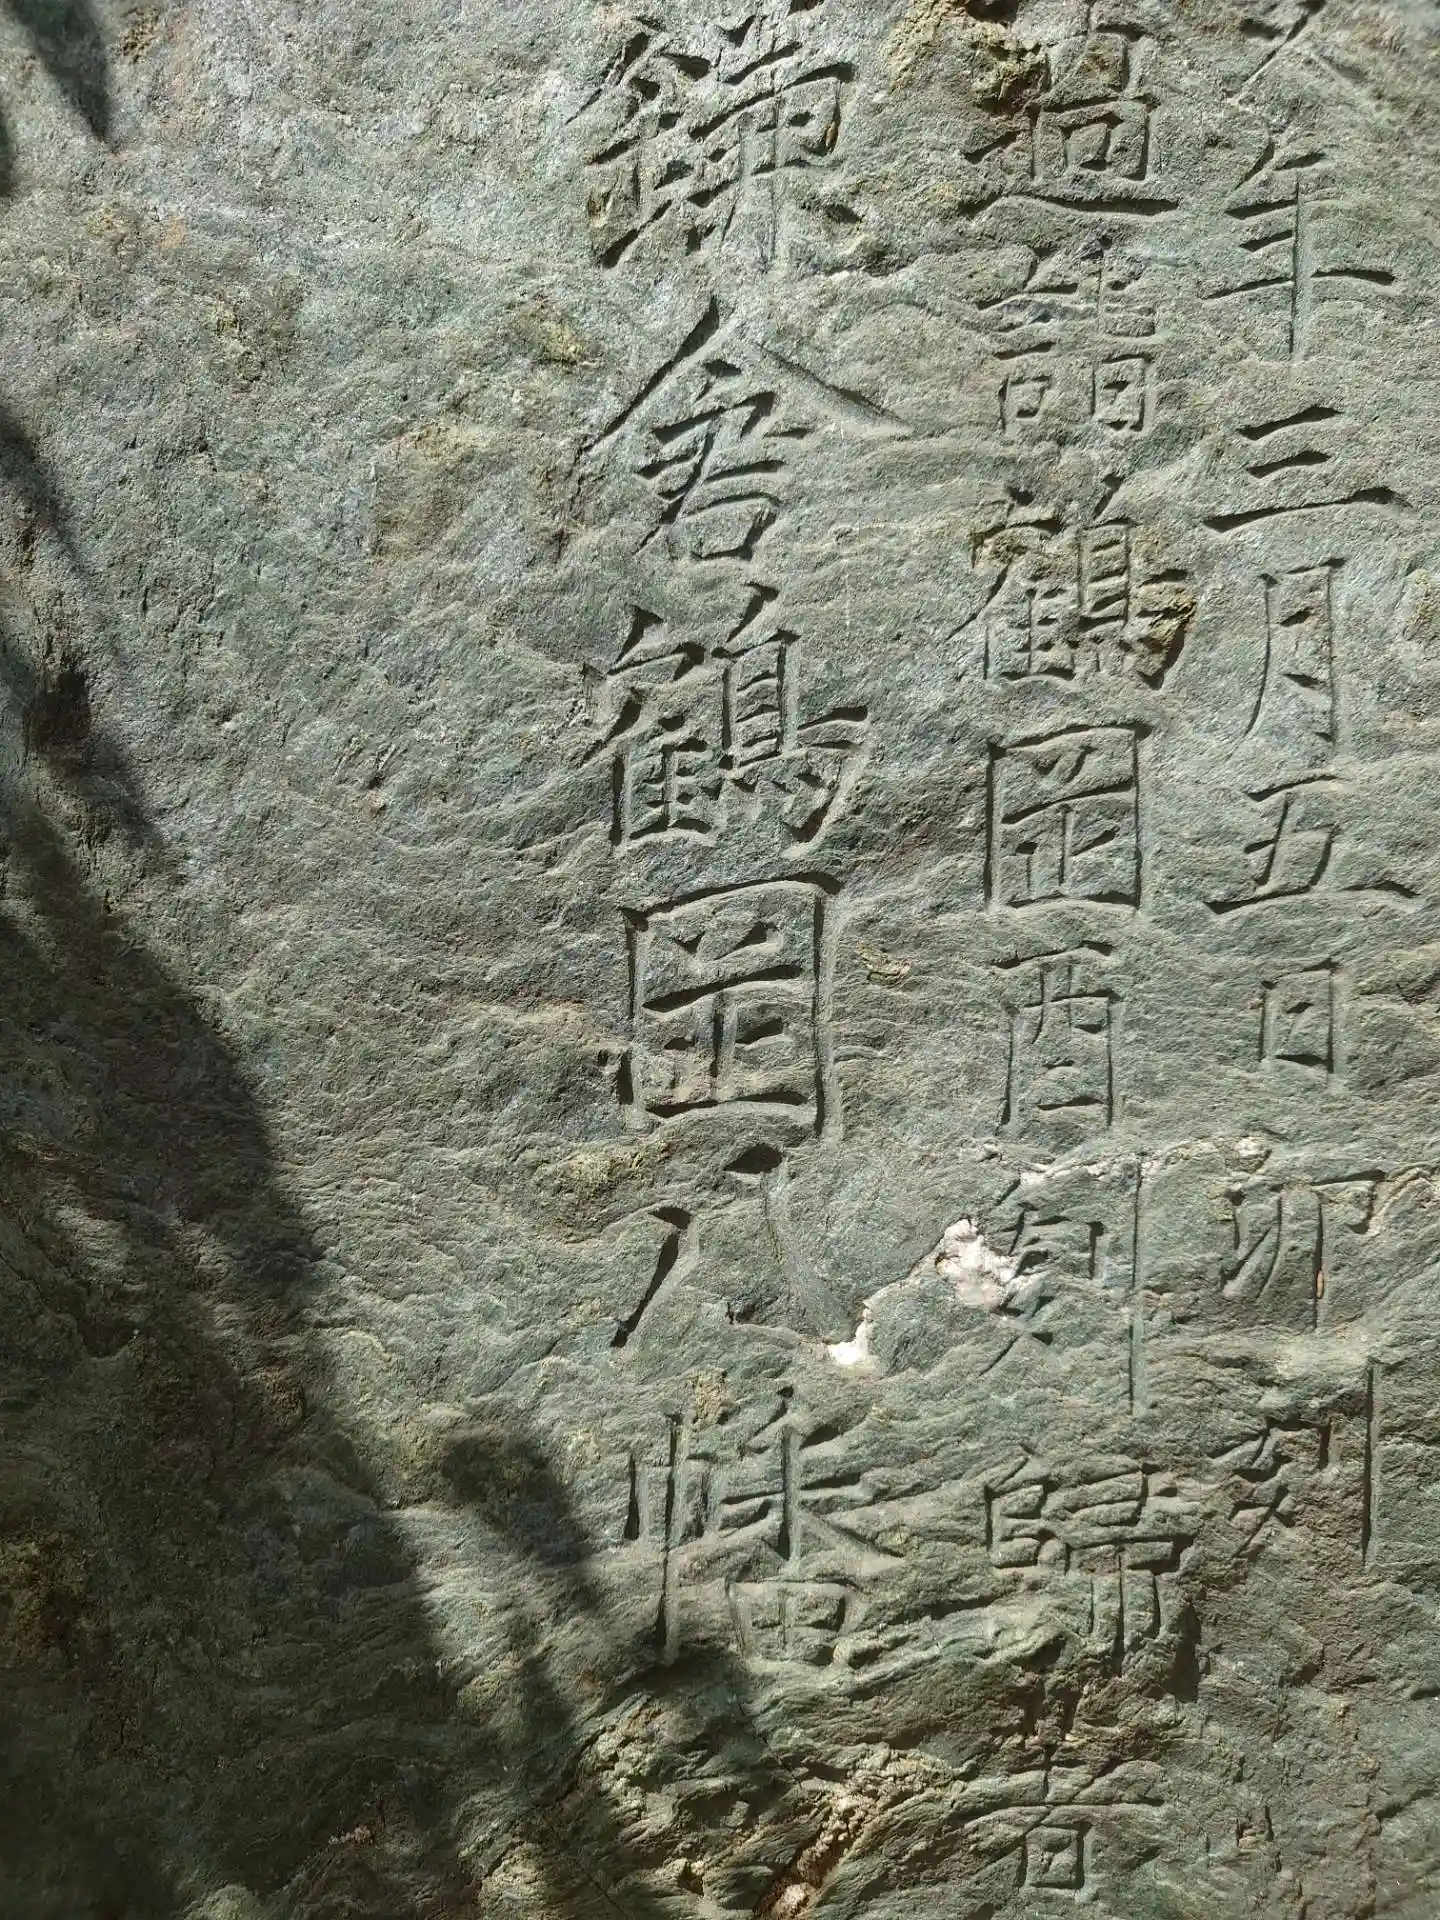 年三月五日卯刻
過詣鶴岡酉刻歸着
鎌倉鶴岡八幡